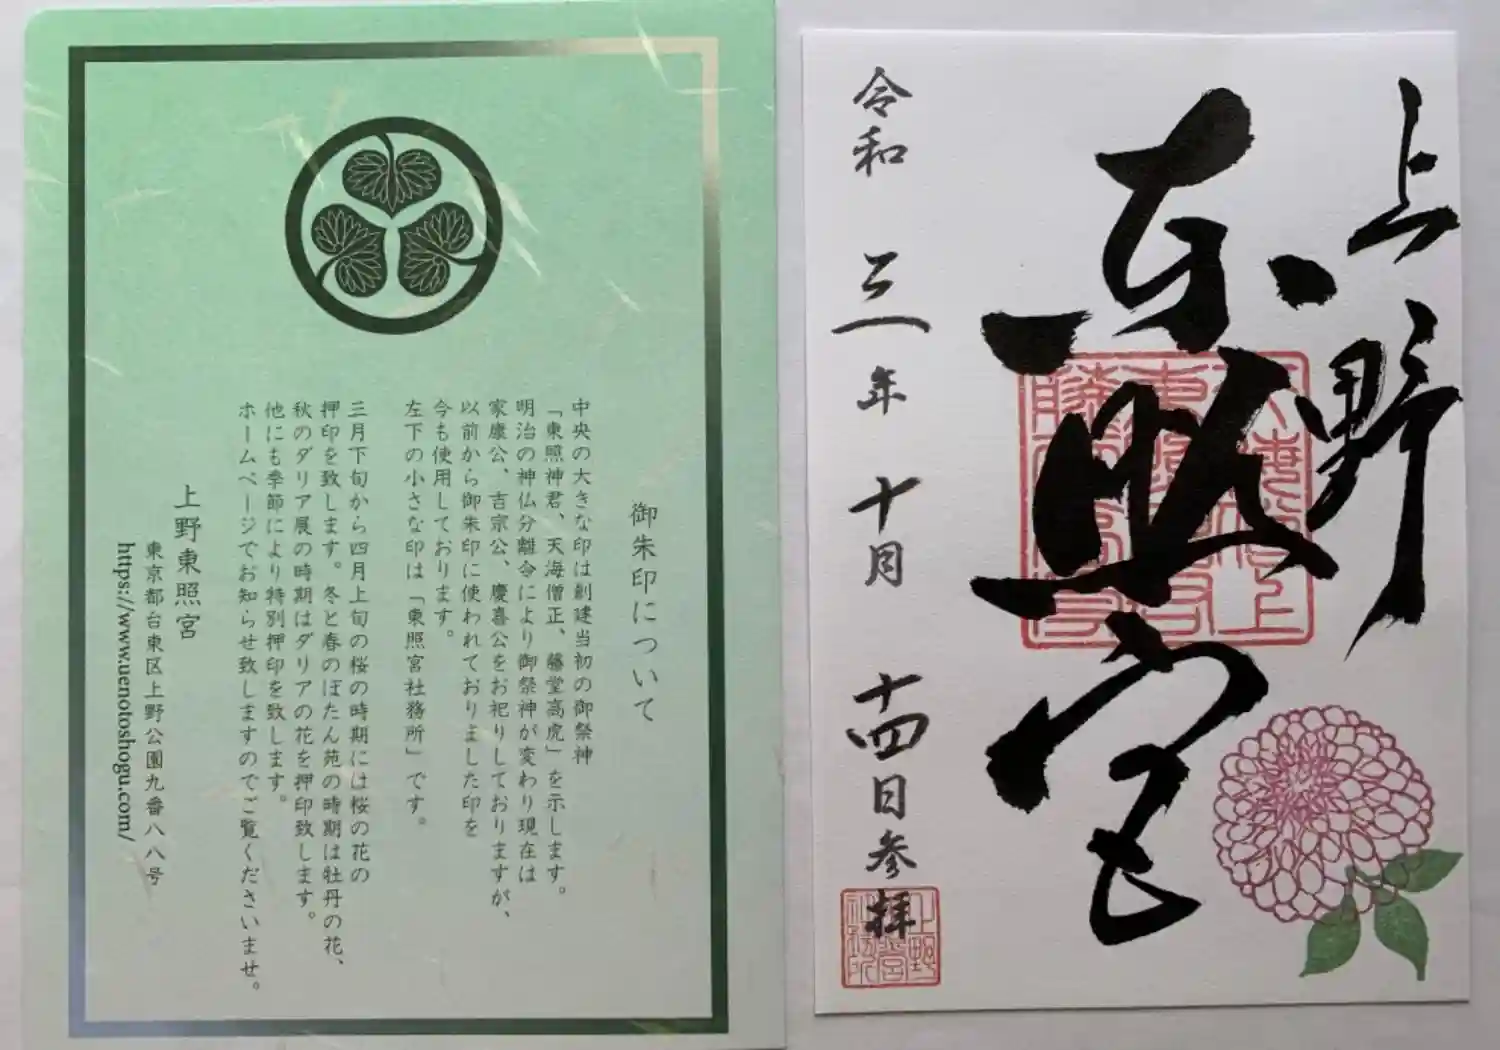 御朱印について
中央の大きな印は創建当初の御祭神
「東照神君、天海僧正、藤堂高虎」を示します。
明治の神仏分離令により御祭神が変わり現在は
家康公、吉宗公、慶喜公をお祀りしておりますが、
以前から御朱印に使われておりました印を
今も使用しております。
左下の小さな印は「東照宮社務所」です。
三月下旬から四月上旬の桜の時期には桜の花の
押印を致します。冬と春のぼたん苑の時期は牡丹の花、
秋のダリア展の時期はダリアの花を押印致します。
他にも季節により特別押印を致します。
ホームページでお知らせ致しますのでご覧くださいませ。
上野東照宮
東京都台東区上野公園九番八八号
https://www.uenotoshogu.com/
上野
東照宮
令和三年十月十四日参拝